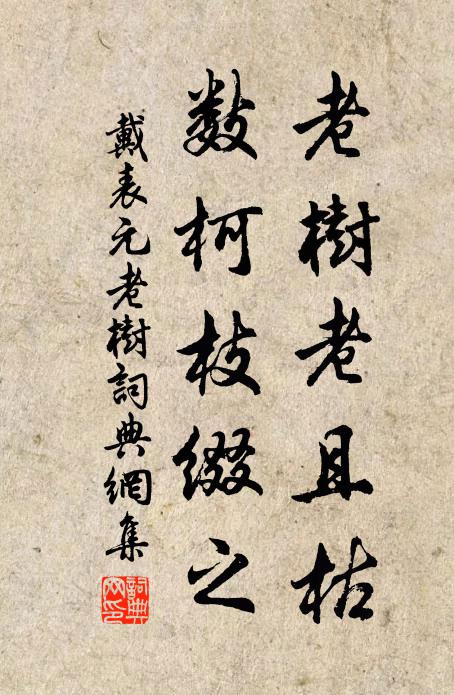 老樹老且枯
數柯枝綴之
戴表元老樹詞典網集
詞典网印